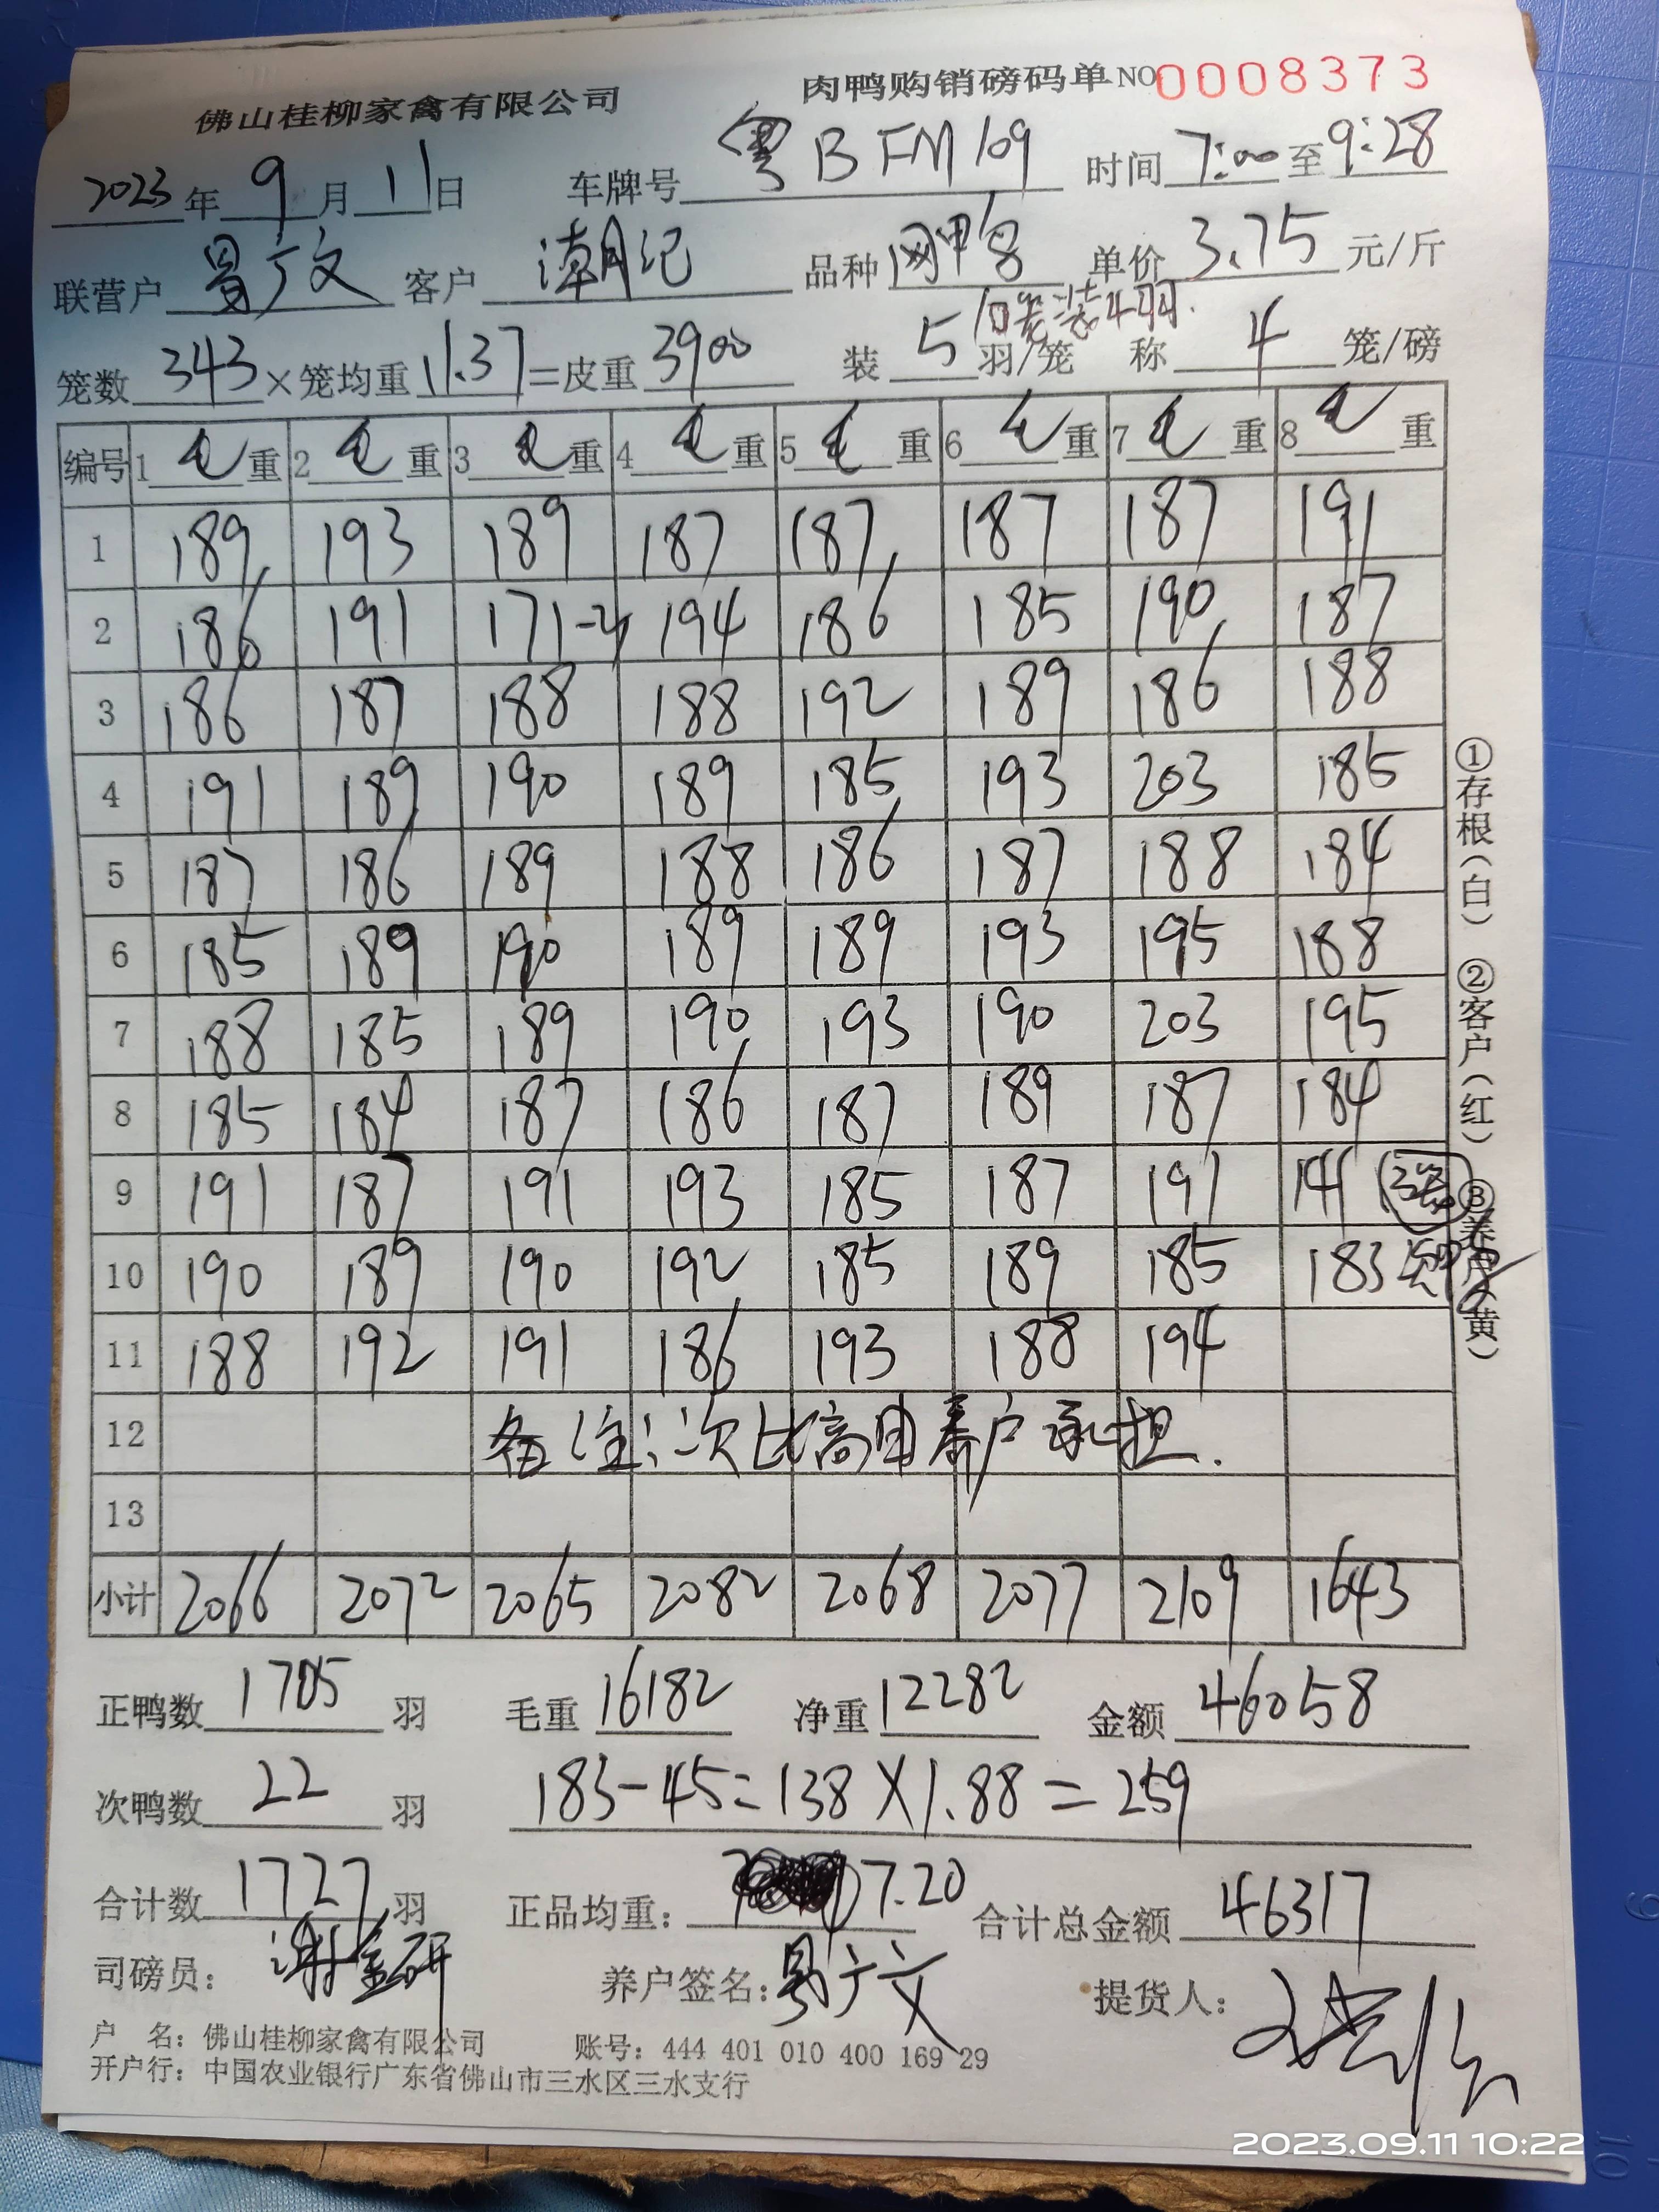 佛山桂柳家禽有限公司 肉鸭购销磅码单 NO 0008373
2023年9月11日 车牌号 粤BFM109 时间 7:00至9:28
联营户 广文 客户 潮记 品种 单价 3.75 元/斤
装4羽.
笼数 343×笼均重 11.37=皮重 3900 装 5 羽/笼 称 4 笼/磅
编号 1 毛重 2 毛重 3 毛重 4 毛重 5 毛重 6 毛重 7 毛重 8 毛重
1 189 193 189 187 187 187 187 191
2 186 191 171-4 194 186 185 190 187
3 186 187 188 188 192 189 186 188
4 191 189 190 189 185 193 203 185
5 187 186 189 188 186 187 188 184
6 185 189 190 189 189 193 195 188
7 188 185 189 190 193 190 203 195
8 185 184 187 186 187 189 187 184
9 191 187 191 193 185 187 191 141
10 190 189 190 192 185 189 185 183
11 188 192 191 186 193 188 194
12 备注:次比高由养户承担.
13
小计 2066 2072 2065 2082 2068 2077 2109 1643
正鸭数 1705 羽 毛重 16182 净重 12282 金额 46058
次鸭数 22 羽 183-45=138×1.88=259
合计数 1727 羽 正品均重: 7.20 合计总金额 46317
司磅员: 谢金研 养户签名: 广文 提货人:
户 名: 佛山桂柳家禽有限公司 账号: 444 401 010 400 169 29
开户行: 中国农业银行广东省佛山市三水区三水支行
①存根(白) ②客户(红) ③养户(黄)
2023.09.11 10:22